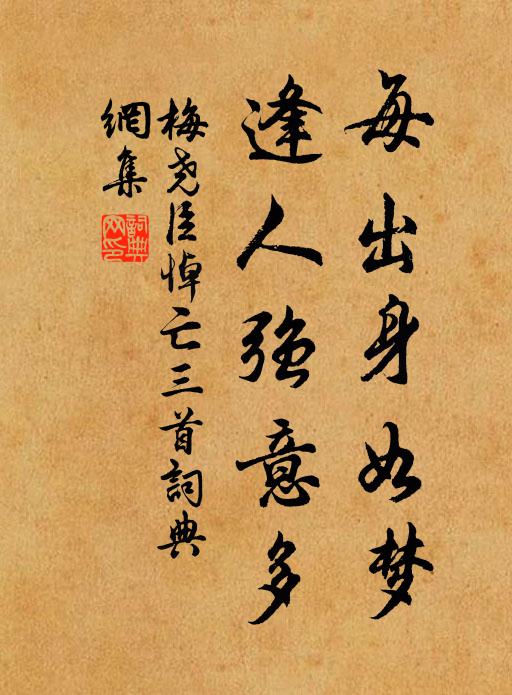 每出身如梦
逢人强意多
梅尧臣悼亡三首詞典
網集
詞典网印